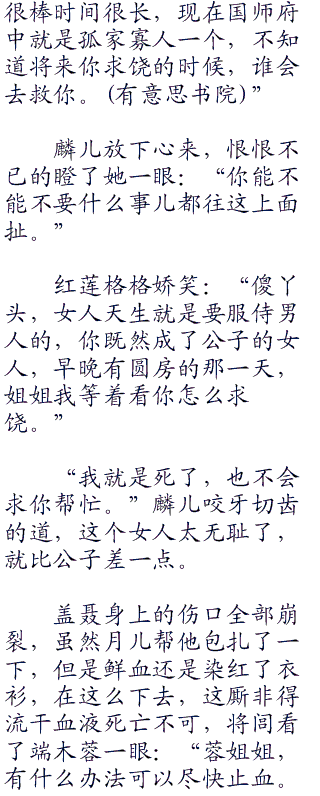 很棒时间很长，现在国师府
中就是孤家寡人一个，不知
道将来你求饶的时候，谁会
去救你。(有意思书院)”
麟儿放下心来，恨恨不
已的瞪了她一眼：“你能不
能不要什么事儿都往这上面
扯。”
红莲格格娇笑：“傻丫
头，女人天生就是要服侍男
人的，你既然成了公子的女
人，早晚有圆房的那一天，
姐姐我等着看你怎么求
饶。”
“我就是死了，也不会
求你帮忙。”麟儿咬牙切齿
的道，这个女人太无耻了，
就比公子差一点。
盖聂身上的伤口全部崩
裂，虽然月儿帮他包扎了一
下，但是鲜血还是染红了衣
衫，在这么下去，这厮非得
流干血液死亡不可，将闾看
了端木蓉一眼：“蓉姐姐，
有什么办法可以尽快止血。